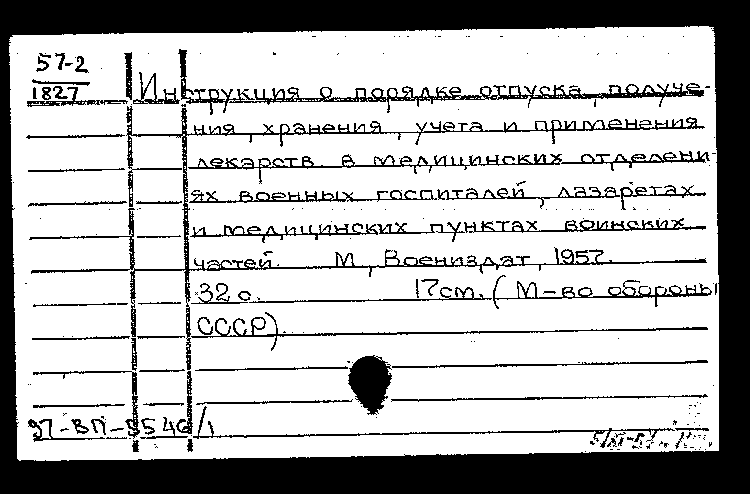 57-2
1827
Инструкция о порядке отпуска, получе-
ния, хранения, учета и применения
лекарств в медицинских отделени
ях военных госпиталей, лазаретах
и медицинских пунктах воинских
частей. М, Воениздат, 1957.
32 с. 17см. (М-во обороны
СССР).